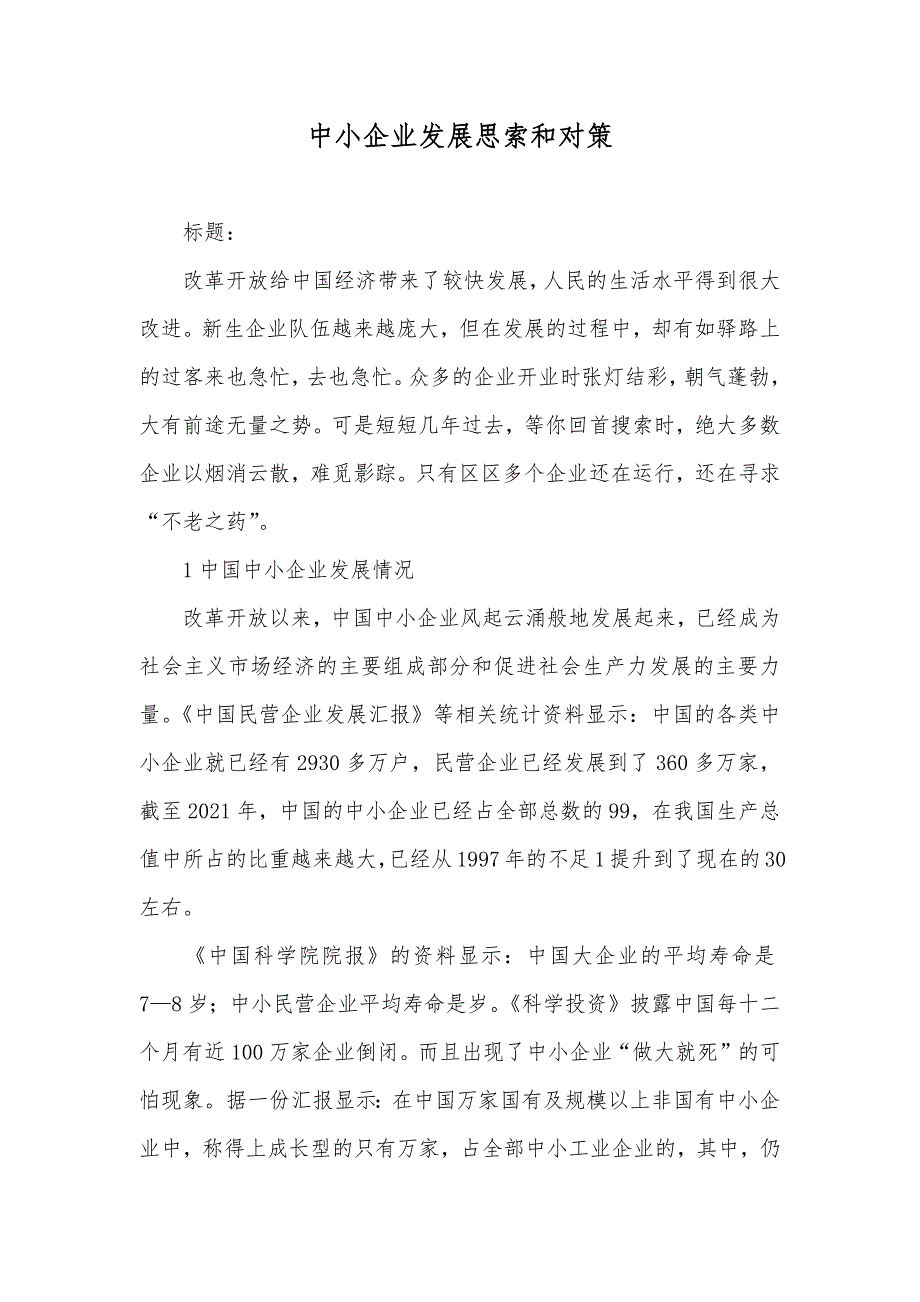 中小企业发展思索和对策
标题：
改革开放给中国经济带来了较快发展，人民的生活水平得到很大
改进。新生企业队伍越来越庞大，但在发展的过程中，却有如驿路上
的过客来也急忙，去也急忙。众多的企业开业时张灯结彩，朝气蓬勃，
大有前途无量之势。可是短短几年过去，等你回首搜索时，绝大多数
企业以烟消云散，难觅影踪。只有区区多个企业还在运行，还在寻求
“不老之药”。
1 中国中小企业发展情况
改革开放以来，中国中小企业风起云涌般地发展起来，已经成为
社会主义市场经济的主要组成部分和促进社会生产力发展的主要力
量。《中国民营企业发展汇报》等相关统计资料显示：中国的各类中
小企业就已经有 2930 多万户，民营企业已经发展到了 360 多万家，
截至 2021 年，中国的中小企业已经占全部总数的 99，在我国生产总
值中所占的比重越来越大，已经从 1997 年的不足 1 提升到了现在的 30
左右。
《中国科学院院报》的资料显示：中国大企业的平均寿命是
7—8 岁；中小民营企业平均寿命是岁。《科学投资》披露中国每十二
个月有近 100 万家企业倒闭。而且出现了中小企业“做大就死”的可
怕现象。据一份汇报显示：在中国万家国有及规模以上非国有中小企
业中，称得上成长型的只有万家，占全部中小工业企业的，其中，仍